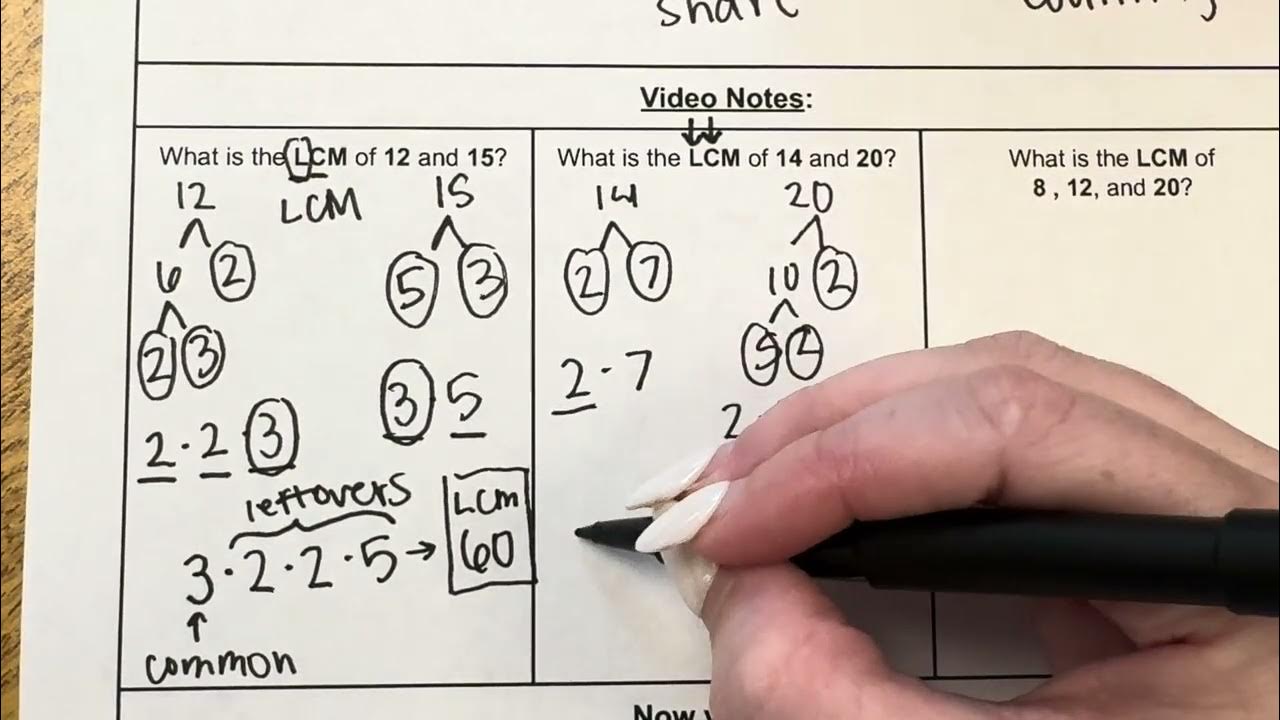 share
Video Notes:
What is the LCM of 12 and 15?
12
LCM
15
6 2
5 3
2 3
2 · 2 3
3 5
leftovers
3 · 2 · 2 · 5 → LCM
60
↑
common
What is the LCM of 14 and 20?
14
20
2 7
10 2
5 2
2 · 7
2
What is the LCM of
8 , 12, and 20?
Now